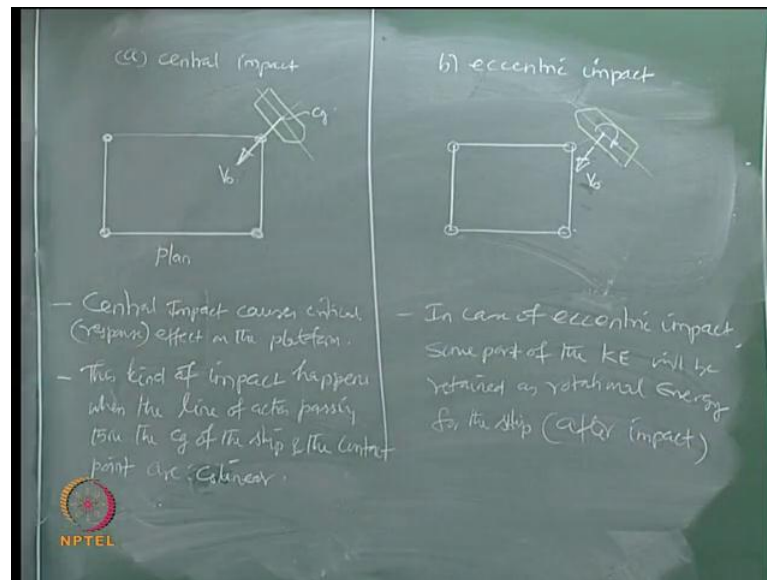 (a) central impact
cg.
Vo
plan
- Central Impact causes critical
(response) effect on the platform.
- This kind of impact happens
when the line of action passing
thro the cg of the ship & the contact
point are colinear.
b) eccentric impact
Vo
- In case of eccentric impact,
some part of the KE will be
retained as rotational Energy
for the ship (after impact)
NPTEL